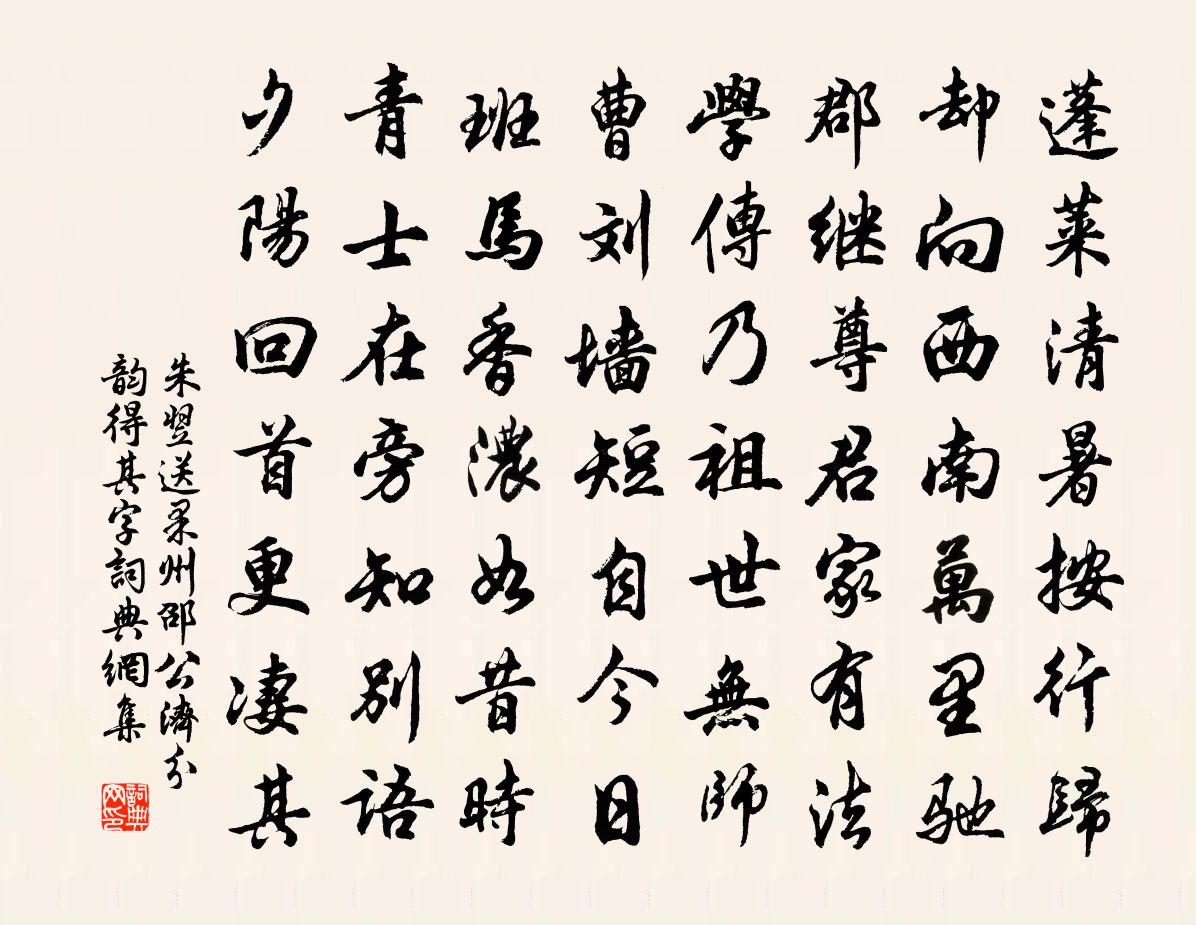 蓬莱清暑按行歸
却向西南萬里馳
郡继尊君家有法
學傳乃祖世無師
曹刘墻短自今日
班馬香濃如昔時
青士在旁知别語
夕陽回首更凄其
朱翌送果州邵公濟分
韵得其字詞典網集
詞典网印